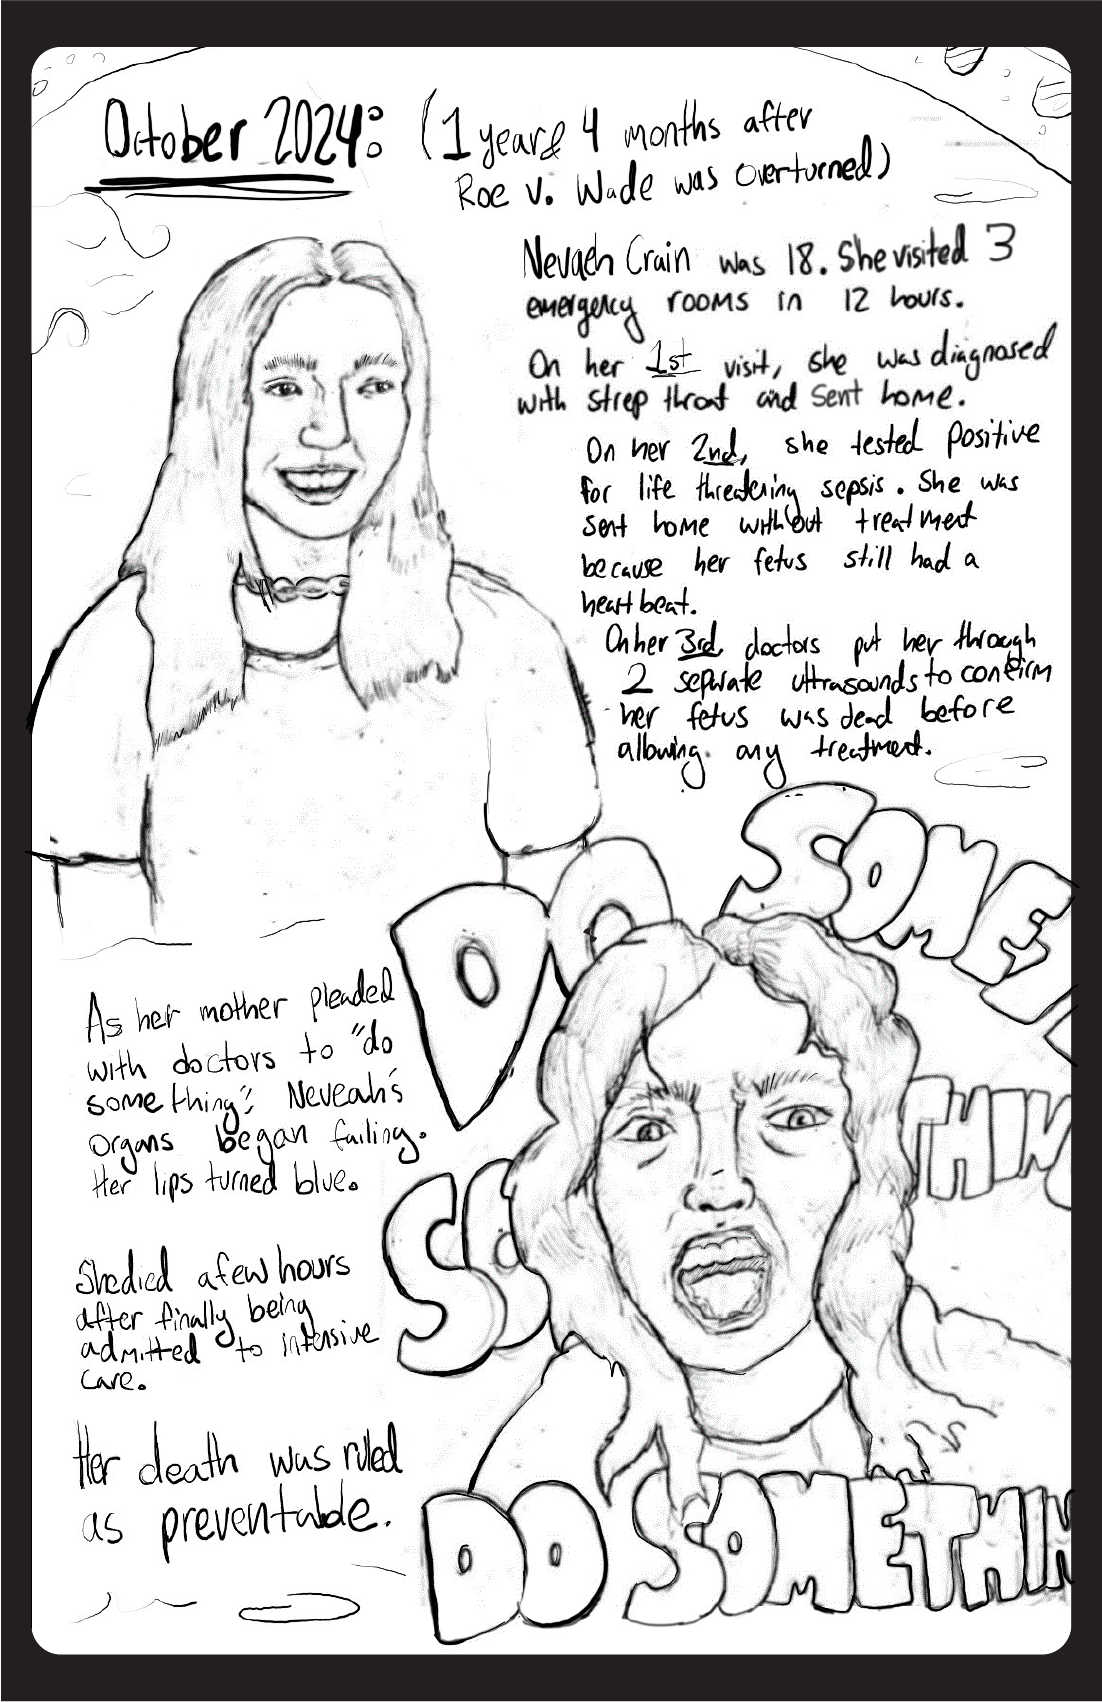 October 2024: (1 year & 4 months after
Roe v. Wade was overturned)
Nevaeh Crain was 18. She visited 3
emergency rooms in 12 hours.
On her 1st visit, she was diagnosed
with strep throat and sent home.
On her 2nd, she tested positive
for life threatening sepsis. She was
sent home without treatment
because her fetus still had a
heartbeat.
On her 3rd, doctors put her through
2 separate ultrasounds to confirm
her fetus was dead before
allowing any treatment.
DO
SOMET
THIN
As her mother pleaded
with doctors to "do
something", Neveah's
organs began failing.
Her lips turned blue.
SO
She died a few hours
after finally being
admitted to intensive
care.
Her death was ruled
as preventable.
DO SOMETHIN